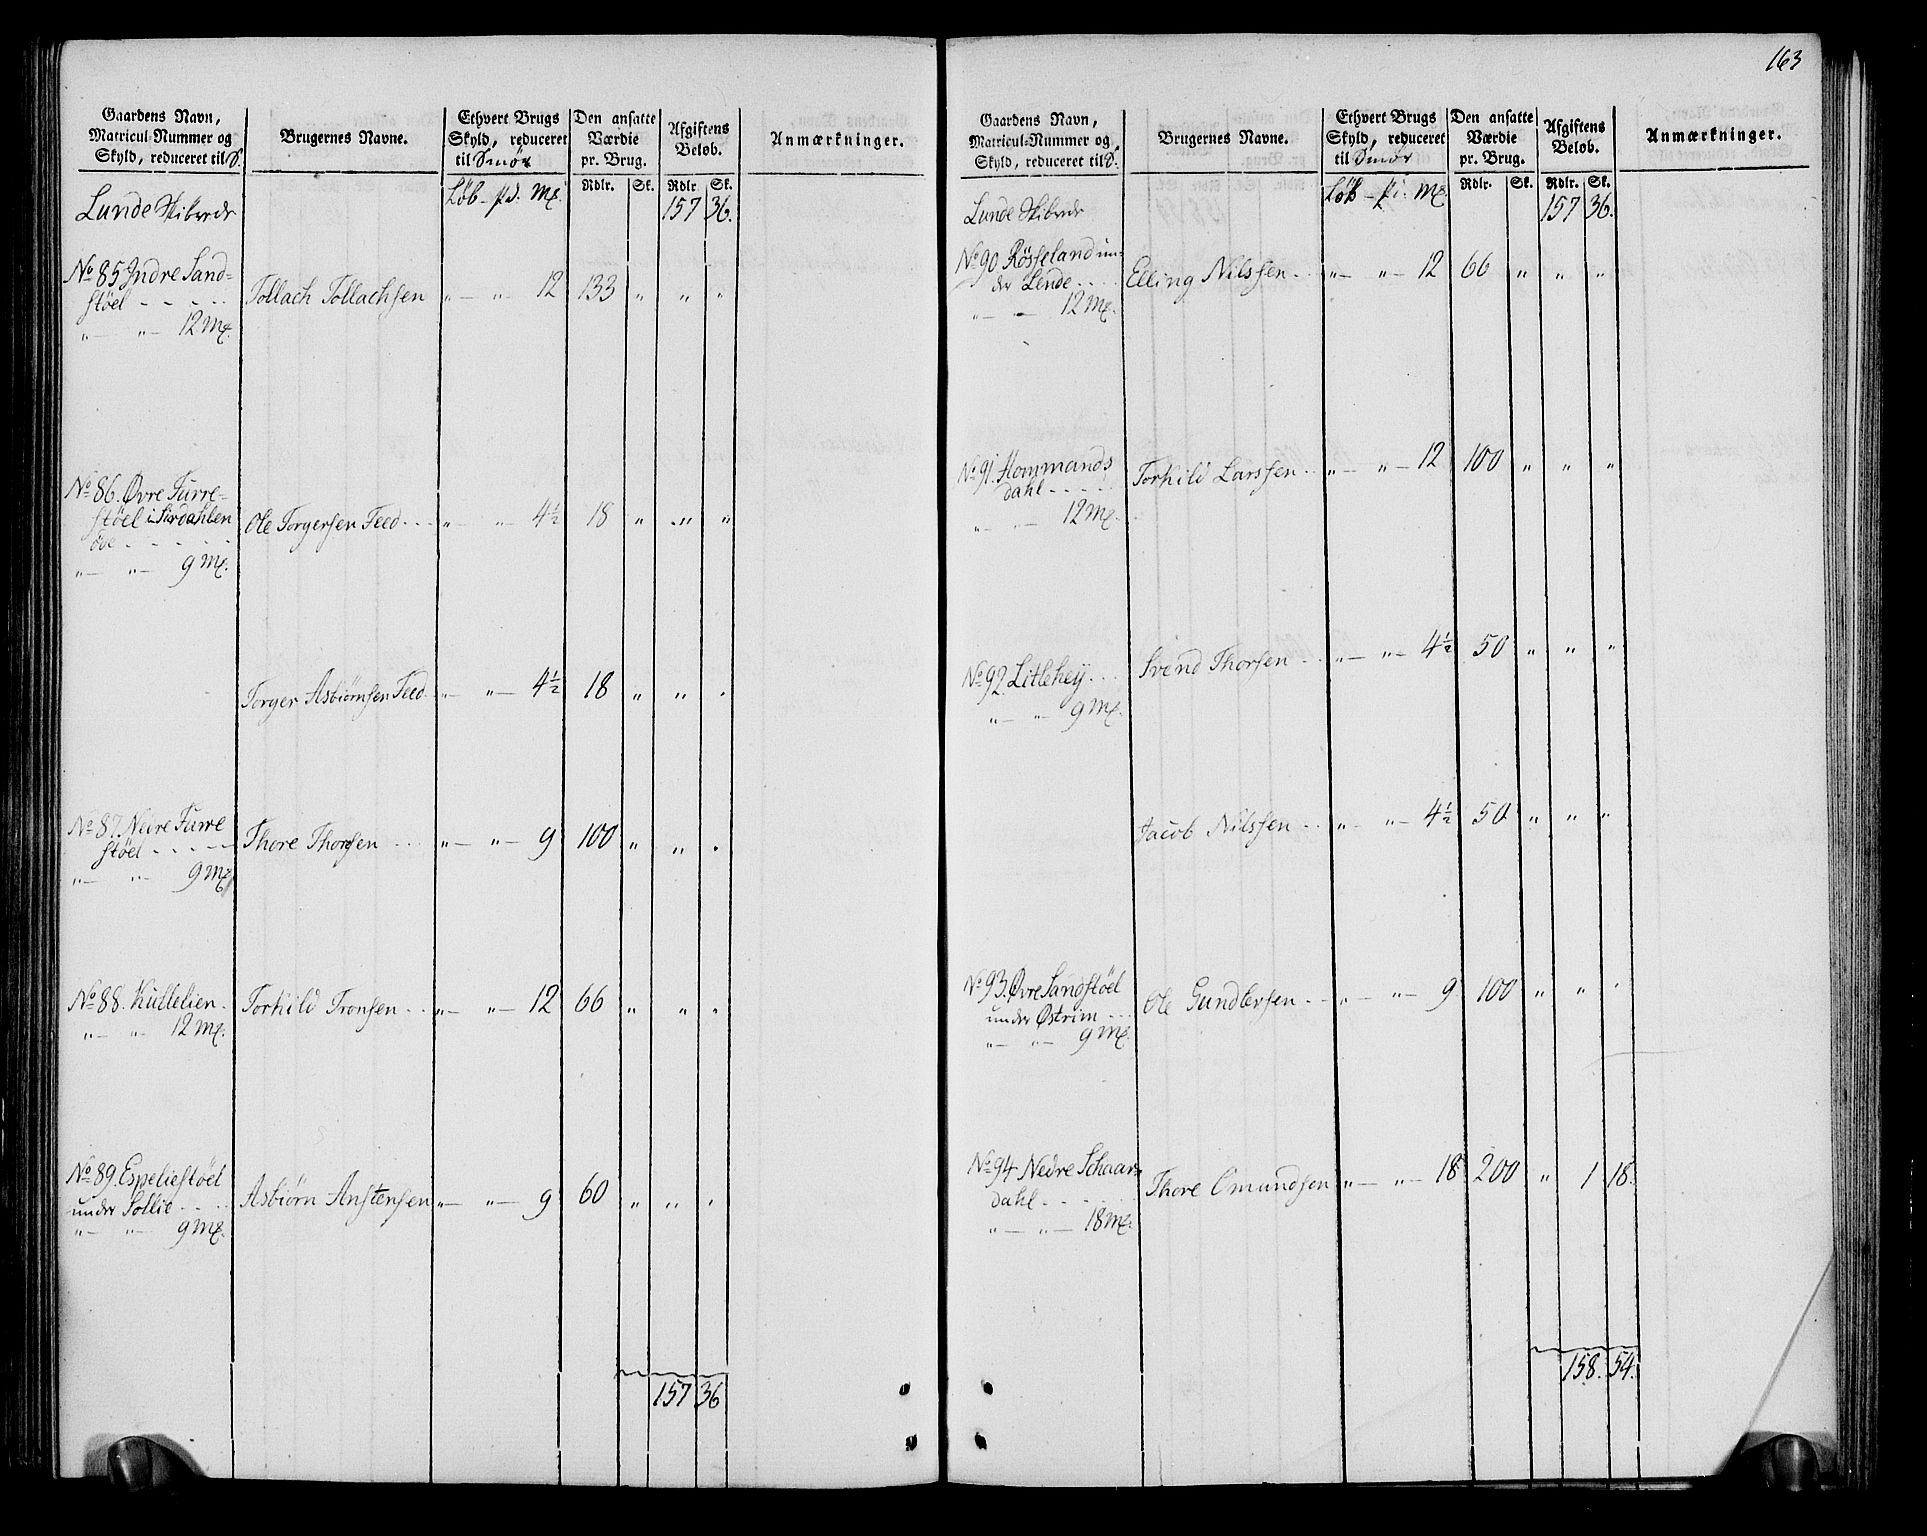 163
Gaardens Navn, Matricul-Nummer og Skyld, reduceret til S. | Brugernes Navne. | Ethvert Brugs Skyld, reduceret til Smør | Den ansatte Værdie pr. Brug. | Afgiftens Beløb. | Anmærkninger.
Løb – pd. mk. | Rdlr. | Sk. | Rdlr. | Sk.
Lunde Skibrede 157 36.
No 85 Indre Sand-
støel - - - - - Tollach Tollachsen „ — „ — 12 133 „ „ „
„ — „ — 12 mk.
No 86. Øvre Furre-
støel i Sirdahlen Ole Torgersen Feed - - - „ — „ — 4½ 18 „ „ „
øde - - - - -
„ — „ — 9 mk.
Torger Asbiørnsen Feed - „ — „ — 4½ 18 „ „ „
No 87. Nedre Furre
støel - - - - - Thore Thorsen - - - „ — „ — 9 100 „ „ „
„ — „ — 9 mk.
No 88. Kullelien - Torkild Tronsen - - „ — „ — 12 66 „ „ „
„ — „ — 12 mk.
No 89. Espeliestøel
under Sollie - - - - Asbiørn Anstensen „ — „ — 9 60 „ „ „
„ — „ — 9 mk.
157 36
Gaardens Navn, Matricul-Nummer og Skyld, reduceret til S. | Brugernes Navne. | Ethvert Brugs Skyld, reduceret til Smør | Den ansatte Værdie pr. Brug. | Afgiftens Beløb. | Anmærkninger.
Løb – pd. mk. | Rdlr. | Sk. | Rdlr. | Sk.
Lunde Skibrede 157 36.
No 90 Røsseland un-
der Lende - - - - Elling Nilssen - - „ — „ — 12 66 „ „ „
„ — „ — 12 mk.
No 91. Hommands
dahl - - - - - Torkild Larssen - - „ — „ — 12 100 „ „ „
„ — „ — 12 mk.
No 92. Litlehey - - - Svend Thorsen - - „ — „ — 4½ 50 „ „ „
„ — „ — 9 mk.
Jacob Nilssen - - „ — „ — 4½ 50 „ „ „
No 93. Øvre Sandstøel
under Østrim - - - Ole Gundlersen - - „ — „ — 9 100 „ „ „
„ — „ — 9 mk.
No 94 Nedre Schaar-
dahl - - - - - Thore Omundsen „ — „ — 18 200 „ 1 18.
„ — „ — 18 mk.
158. 54.